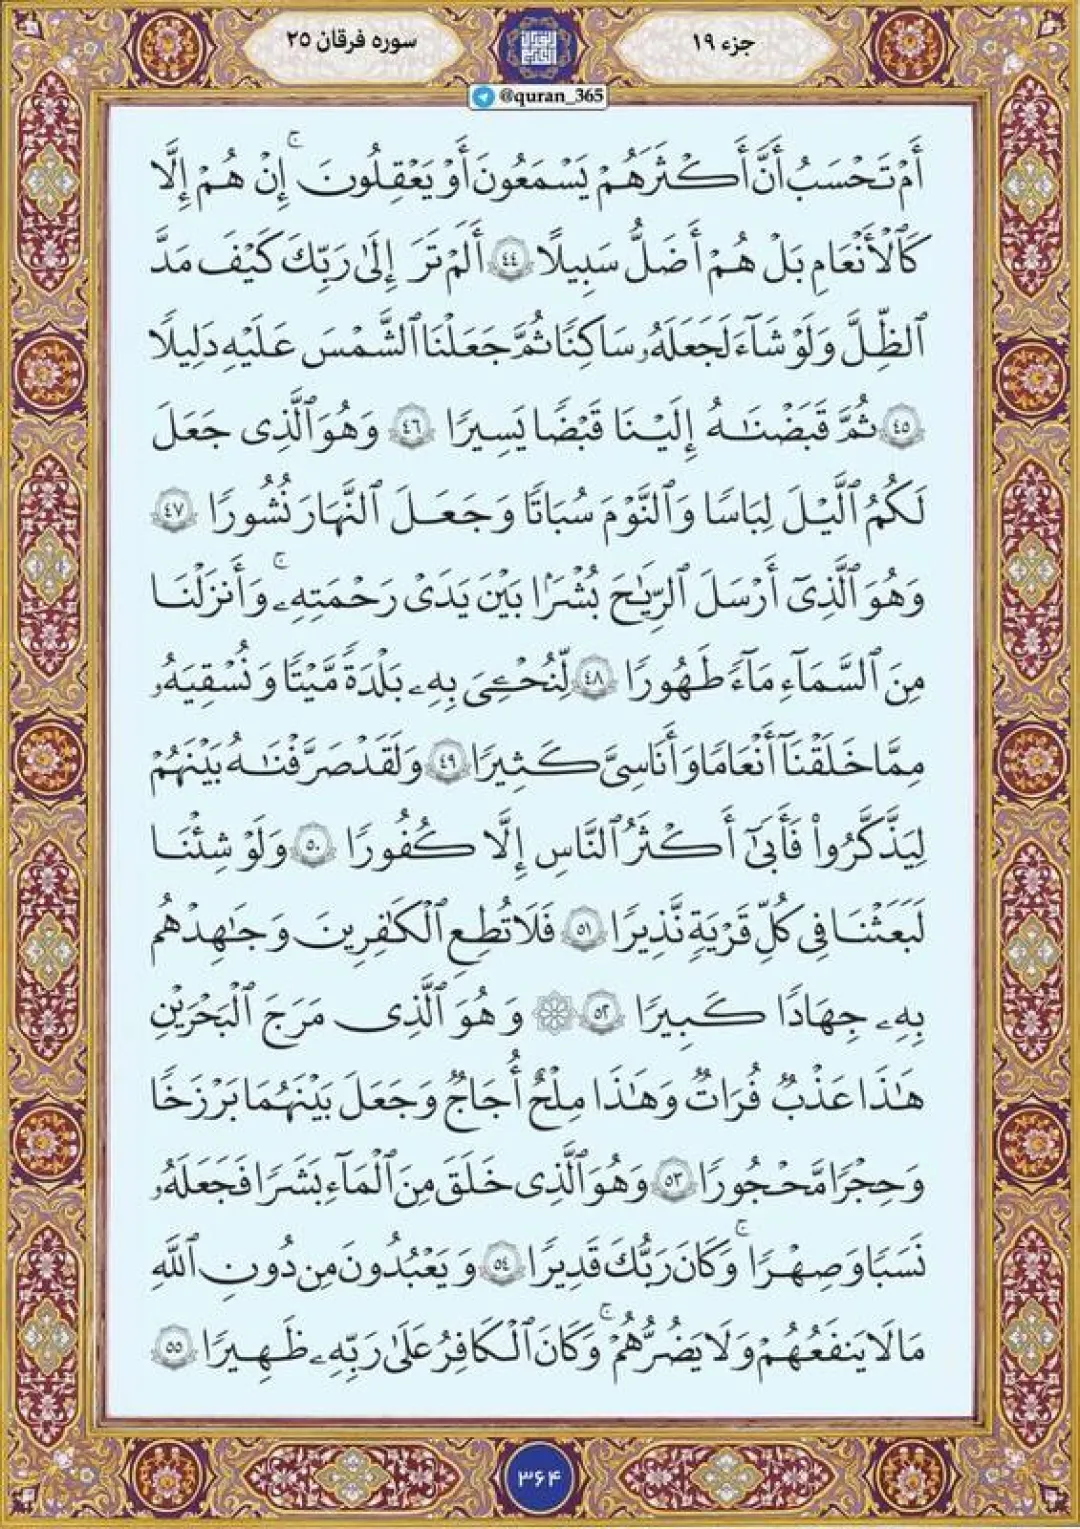 جزء ۱۹
سوره فرقان ۲۵
@quran_365
أَمْ تَحْسَبُ أَنَّ أَكْثَرَهُمْ يَسْمَعُونَ أَوْ يَعْقِلُونَ ۚ إِنْ هُمْ إِلَّا
كَالْأَنْعَامِ بَلْ هُمْ أَضَلُّ سَبِيلًا ﴿٤٤﴾ أَلَمْ تَرَ إِلَىٰ رَبِّكَ كَيْفَ مَدَّ
ٱلظِّلَّ وَلَوْ شَآءَ لَجَعَلَهُۥ سَاكِنًا ثُمَّ جَعَلْنَا ٱلشَّمْسَ عَلَيْهِ دَلِيلًا
﴿٤٥﴾ ثُمَّ قَبَضْنَـٰهُ إِلَيْنَا قَبْضًا يَسِيرًا ﴿٤٦﴾ وَهُوَ ٱلَّذِى جَعَلَ
لَكُمُ ٱلَّيْلَ لِبَاسًا وَٱلنَّوْمَ سُبَاتًا وَجَعَلَ ٱلنَّهَارَ نُشُورًا ﴿٤٧﴾
وَهُوَ ٱلَّذِىٓ أَرْسَلَ ٱلرِّيَـٰحَ بُشْرًۢا بَيْنَ يَدَىْ رَحْمَتِهِۦ ۚ وَأَنزَلْنَا
مِنَ ٱلسَّمَآءِ مَآءً طَهُورًا ﴿٤٨﴾ لِّنُحْـِۧىَ بِهِۦ بَلْدَةً مَّيْتًا وَنُسْقِيَهُۥ
مِمَّا خَلَقْنَآ أَنْعَامًا وَأَنَاسِىَّ كَثِيرًا ﴿٤٩﴾ وَلَقَدْ صَرَّفْنَـٰهُ بَيْنَهُمْ
لِيَذَّكَّرُوا۟ فَأَبَىٰٓ أَكْثَرُ ٱلنَّاسِ إِلَّا كُفُورًا ﴿٥٠﴾ وَلَوْ شِئْنَا
لَبَعَثْنَا فِى كُلِّ قَرْيَةٍ نَّذِيرًا ﴿٥١﴾ فَلَا تُطِعِ ٱلْكَـٰفِرِينَ وَجَـٰهِدْهُم
بِهِۦ جِهَادًا كَبِيرًا ﴿٥٢﴾ ۞ وَهُوَ ٱلَّذِى مَرَجَ ٱلْبَحْرَيْنِ
هَـٰذَا عَذْبٌ فُرَاتٌ وَهَـٰذَا مِلْحٌ أُجَاجٌ وَجَعَلَ بَيْنَهُمَا بَرْزَخًا
وَحِجْرًا مَّحْجُورًا ﴿٥٣﴾ وَهُوَ ٱلَّذِى خَلَقَ مِنَ ٱلْمَآءِ بَشَرًا فَجَعَلَهُۥ
نَسَبًا وَصِهْرًا ۗ وَكَانَ رَبُّكَ قَدِيرًا ﴿٥٤﴾ وَيَعْبُدُونَ مِن دُونِ ٱللَّهِ
مَا لَا يَنفَعُهُمْ وَلَا يَضُرُّهُمْ ۗ وَكَانَ ٱلْكَافِرُ عَلَىٰ رَبِّهِۦ ظَهِيرًا ﴿٥٥﴾
۳۶۴